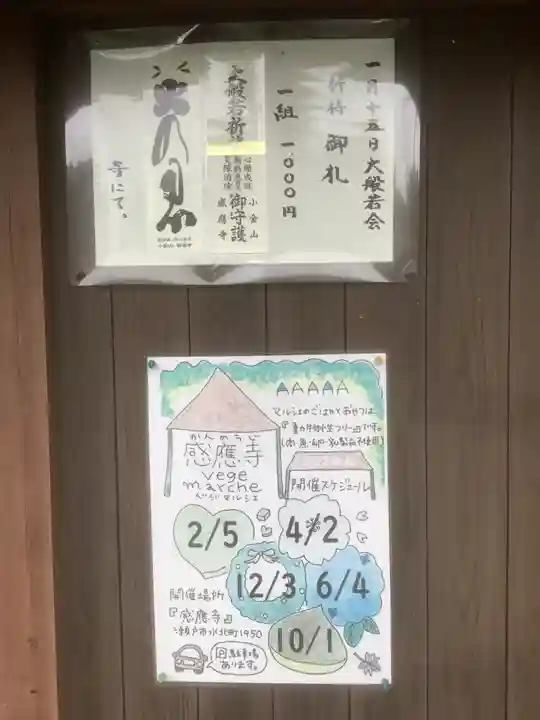 一月十五日大般若会
祈祷 御札
一組 一〇〇〇円
大般若祈
心願成就
小金山
感應寺
御守護
寺にて。
感應寺
vege
marche
べじマルシェ
マルシェのごはんとおやつは
『動物性フリー』です。
(肉・魚・卵・乳製品不使用)
開催スケジュール
2/5
4/2
12/3
6/4
10/1
開催場所
『感應寺』
瀬戸市水北町1950
P駐車場
あります。